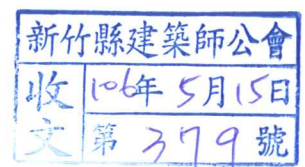 新竹縣建築師公會
收文
106年5月15日
第379號